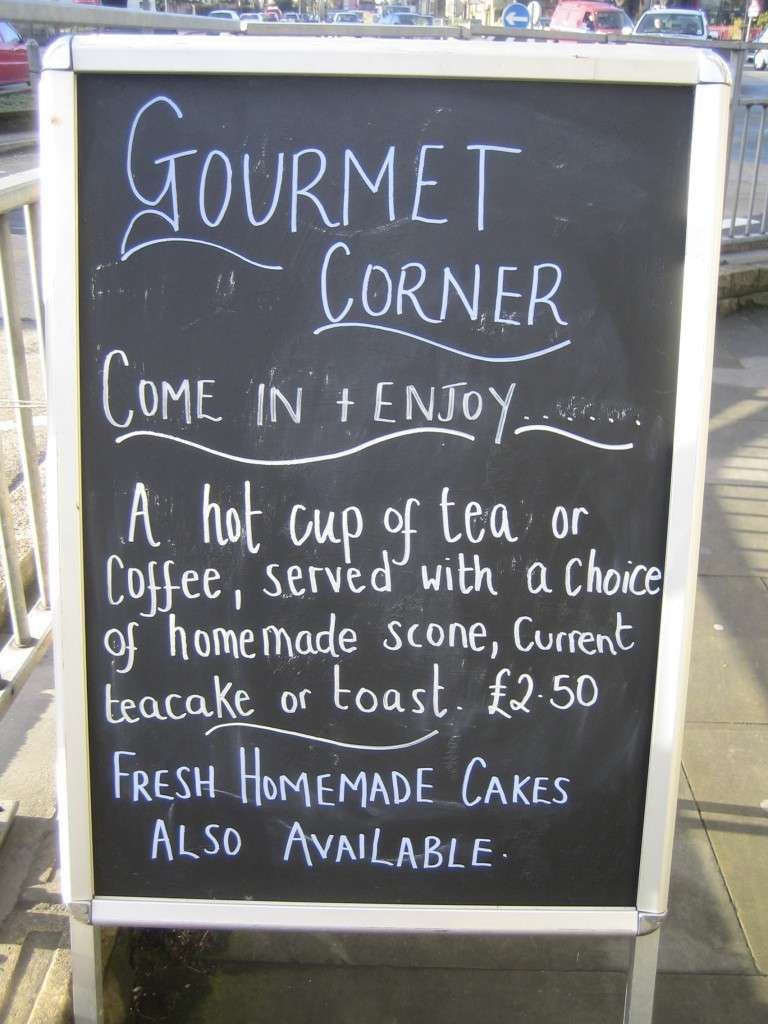 GOURMET
CORNER
COME IN + ENJOY.......
A hot cup of tea or
Coffee, served with a Choice
of homemade scone, Current
teacake or toast. £2.50
FRESH HOMEMADE CAKES
ALSO AVAILABLE.